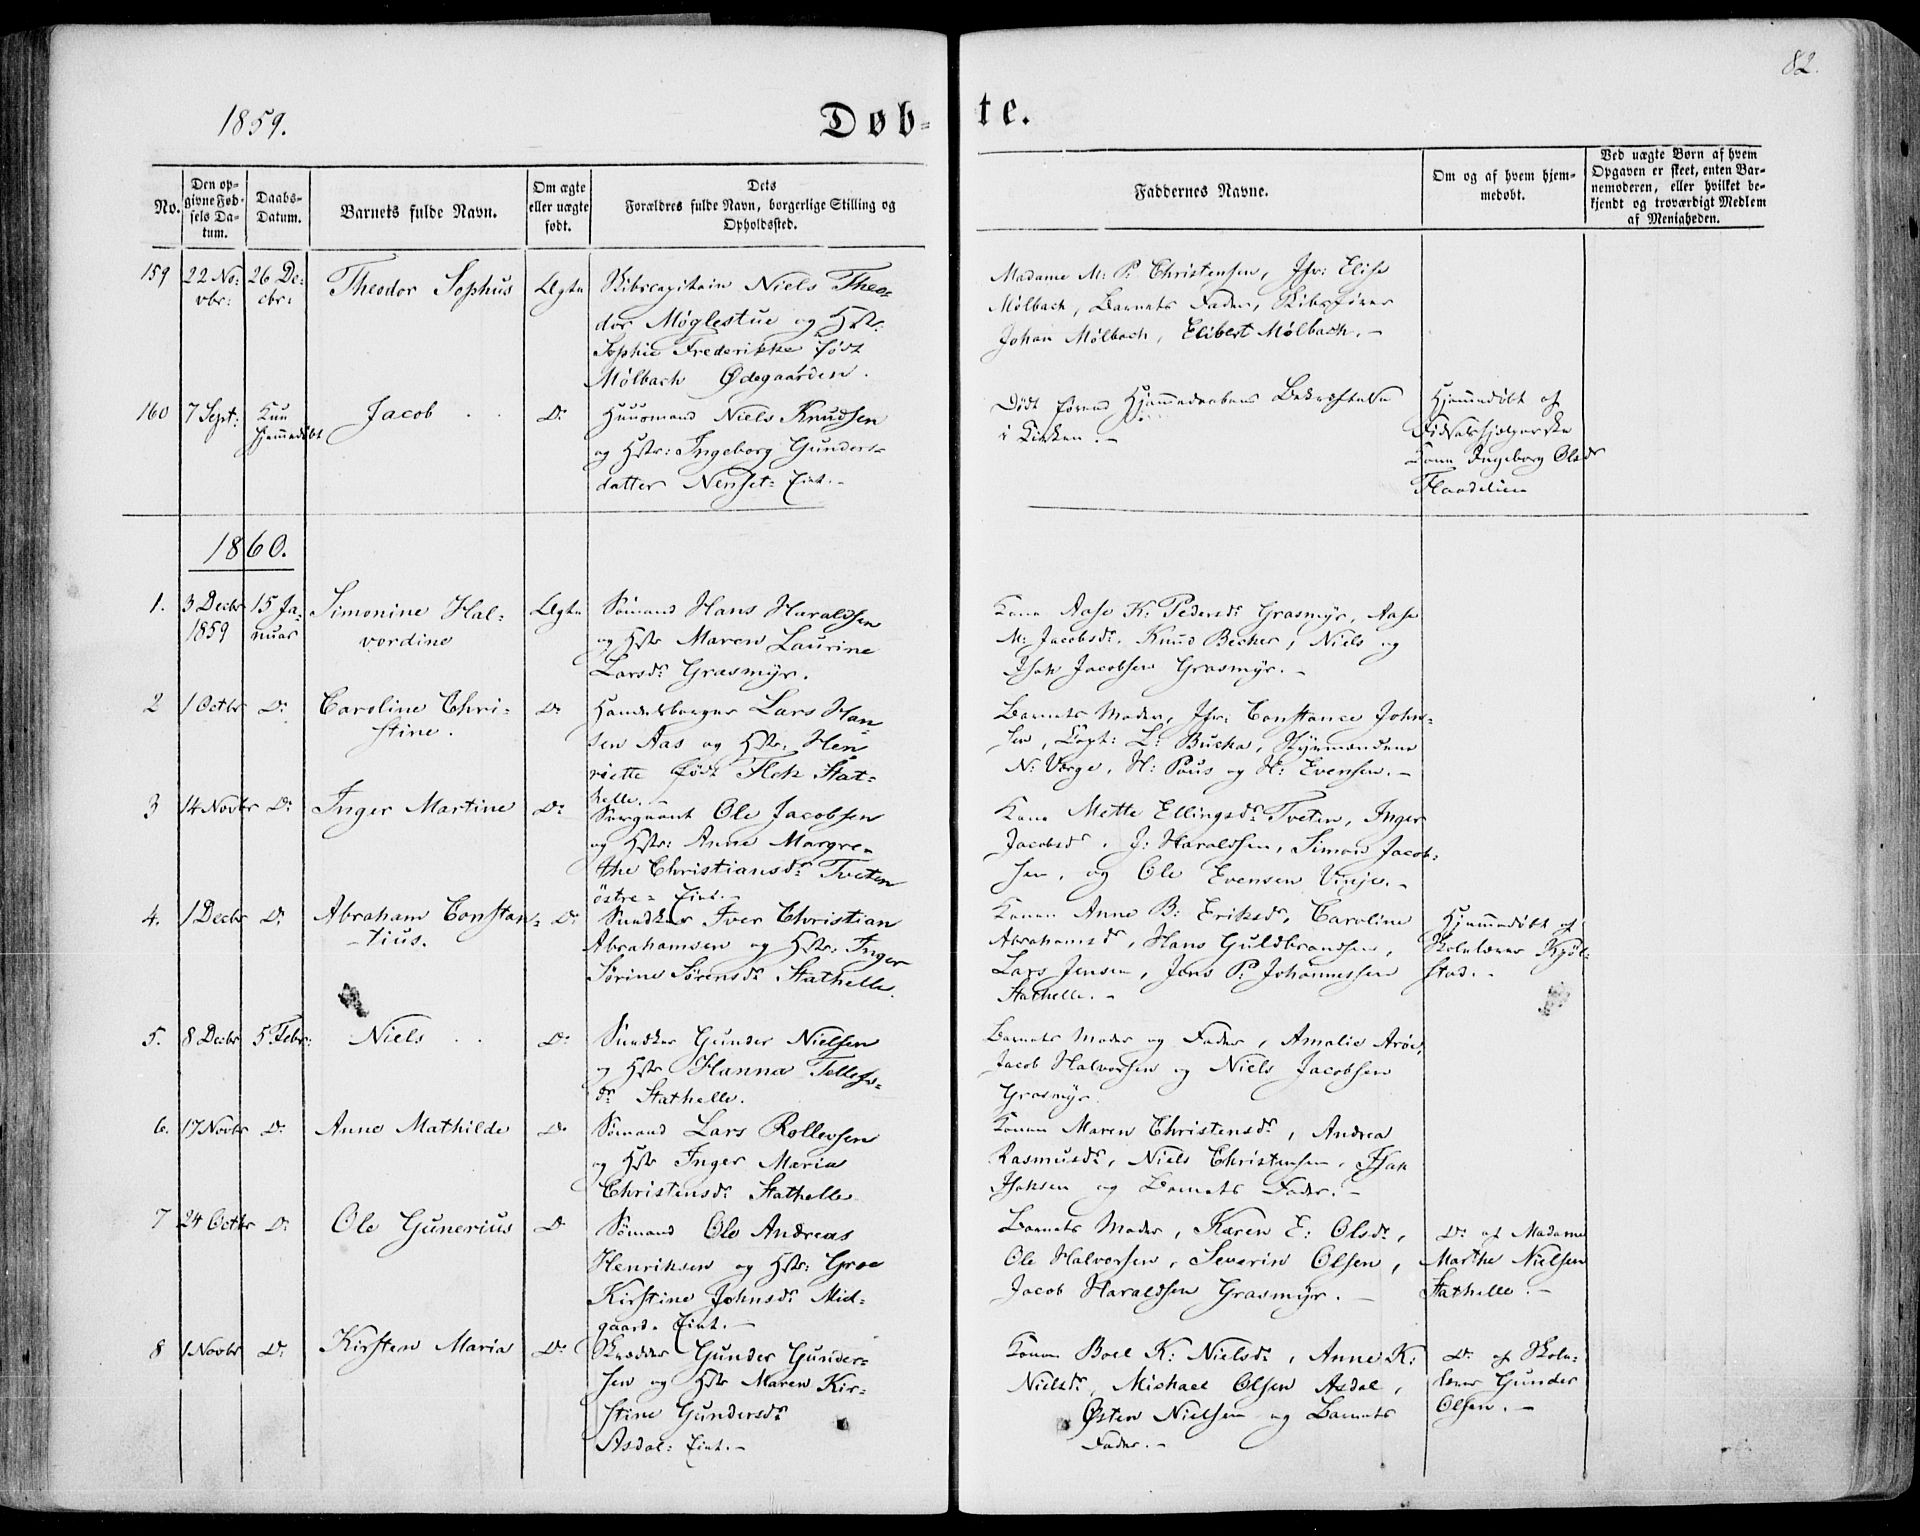 82.
1859.
Døb-
te.
No.
Den op-
givne Fød-
sels Da-
tum.
Daabs-
Datum.
Barnets fulde Navn.
Om ægte
eller uægte
født.
Dets
Forældres fulde Navn, borgerlige Stilling og
Opholdssted.
Faddernes Navne.
Om og af hvem hjem-
medøbt.
Ved uægte Børn af hvem
Opgaven er skeet, enten Bar-
nemoderen, eller hvilket be-
kjendt og troværdigt Medlem
af Menigheden.
159
22 No-
vbr:
26 De-
cbr:
Theodor Sophus
Ægte
Skibscapitain Niels Theo-
dor Møglestue og Hstr:
Sophie Frederikke født
Mølbach Ødegaarden.
Madame M: P: Christensen, Jfr: Elise
Mølbach, Barnets Fader, Skibsfører
Johan Mølbach, Elibert Mølbach. -
160
7 Sept:
Kun
hjemmedøbt
Jacob
Do
Huusmand Niels Knudsen
og Hstr: Ingeborg Gunders-
datter Nenset= Eiet. -
Død forend Hjemmedaabens Bekræftelse
i Kirken. -
Hjemmedøbt af
Kone Ingeborg Olsdr
1860.
1.
3 Decbr
1859
15 Ja-
nuar
Simonine Hal-
vordine
Ægte
Sømand Hans Haraldsen
og Hstr Maren Laurine
Larsdr Grasmyr.
Kone Aase K. Pedersdr Grasmyr, Aase
M: Jacobsdr. Knud Becher, Niels og
Isak Jacobsen Grasmyr. -
2
1 Octbr
Do
Caroline Chri-
stine.
Do
Handelsborger Lars Han-
sen Aas og Hstr: Hen
riette født Flek Stat-
helle. -
Barnets Moder, Jfr: Constance John-
sen, Capt: L: Bucka, Styrmændene
N: Vorge, H: Paus og H: Evensen. -
3
14 Novbr
Do
Inger Martine
Do
Sergeant Ole Jacobsen
og Hstr: Anne Margre-
the Christiansdr Tveten
östre= Eiet. -
Kone Mette Ellingsdr Tveten, Inger
Jacobsdr, J: Haraldsen, Simon Jacob-
sen, og Ole Evensen Vinje. -
4.
1 Decbr
Do
Abraham Constan-
tius.
Do
Snedker Iver Christian
Abrahamsen og Hstr: Inger
Sörine Sörensdr Stathelle.
Konen Anne B: Eriksdr, Caroline
Abrahamsdr, Hans Guldbrandsen,
Lars Jensen, Jens P: Johannessen
Stathelle. -
Hjemmedøbt af
Skolelærer Kjöl-
stad. -
5.
8 Decbr
5 Febr:
Niels
Do
Snedker Gunder Nielsen
og Hstr Hanna Tellefs-
dr Stathelle.
Barnets Moder og Fader, Amalie Aröe,
Jacob Halvorsen og Niels Jacobsen
Grasmyr.
6.
17 Novbr
Do
Anne Mathilde
Do
Sømand Lars Rollevsen
og Hstr Inger Maria
Christensdr Stathelle
Konen Maren Christensdr, Andrea
Rasmusdr, Niels Christensen, Isak
Isaksen og Barnets Fader. -
7
24 Octbr
Do
Ole Gunerius
Do
Sømand Ole Andreas
Henriksen og Hstr: Groe
Kirstine Johnsdr Mid-
gaard= Eiet. -
Barnets Moder, Karen E: Olsdr,
Ole Halvorsen, Severin Olsen,
Jacob Haraldsen Grasmyr. -
Do af Madame
Marthe Nielsen
Stathelle. -
8
1 Novbr
Do
Kirsten Maria
Do
Skrædder Gunder Gunder-
sen og Hstr Maren Kir-
stine Gundersdr
Asdal= Eiet. -
Konen Boel K: Nielsdr, Anne K:
Nielsdr, Michael Olsen Asdal,
Østen Nielsen og Barnets
Fader. -
Do af Skole-
lærer Gunder
Olsen. -